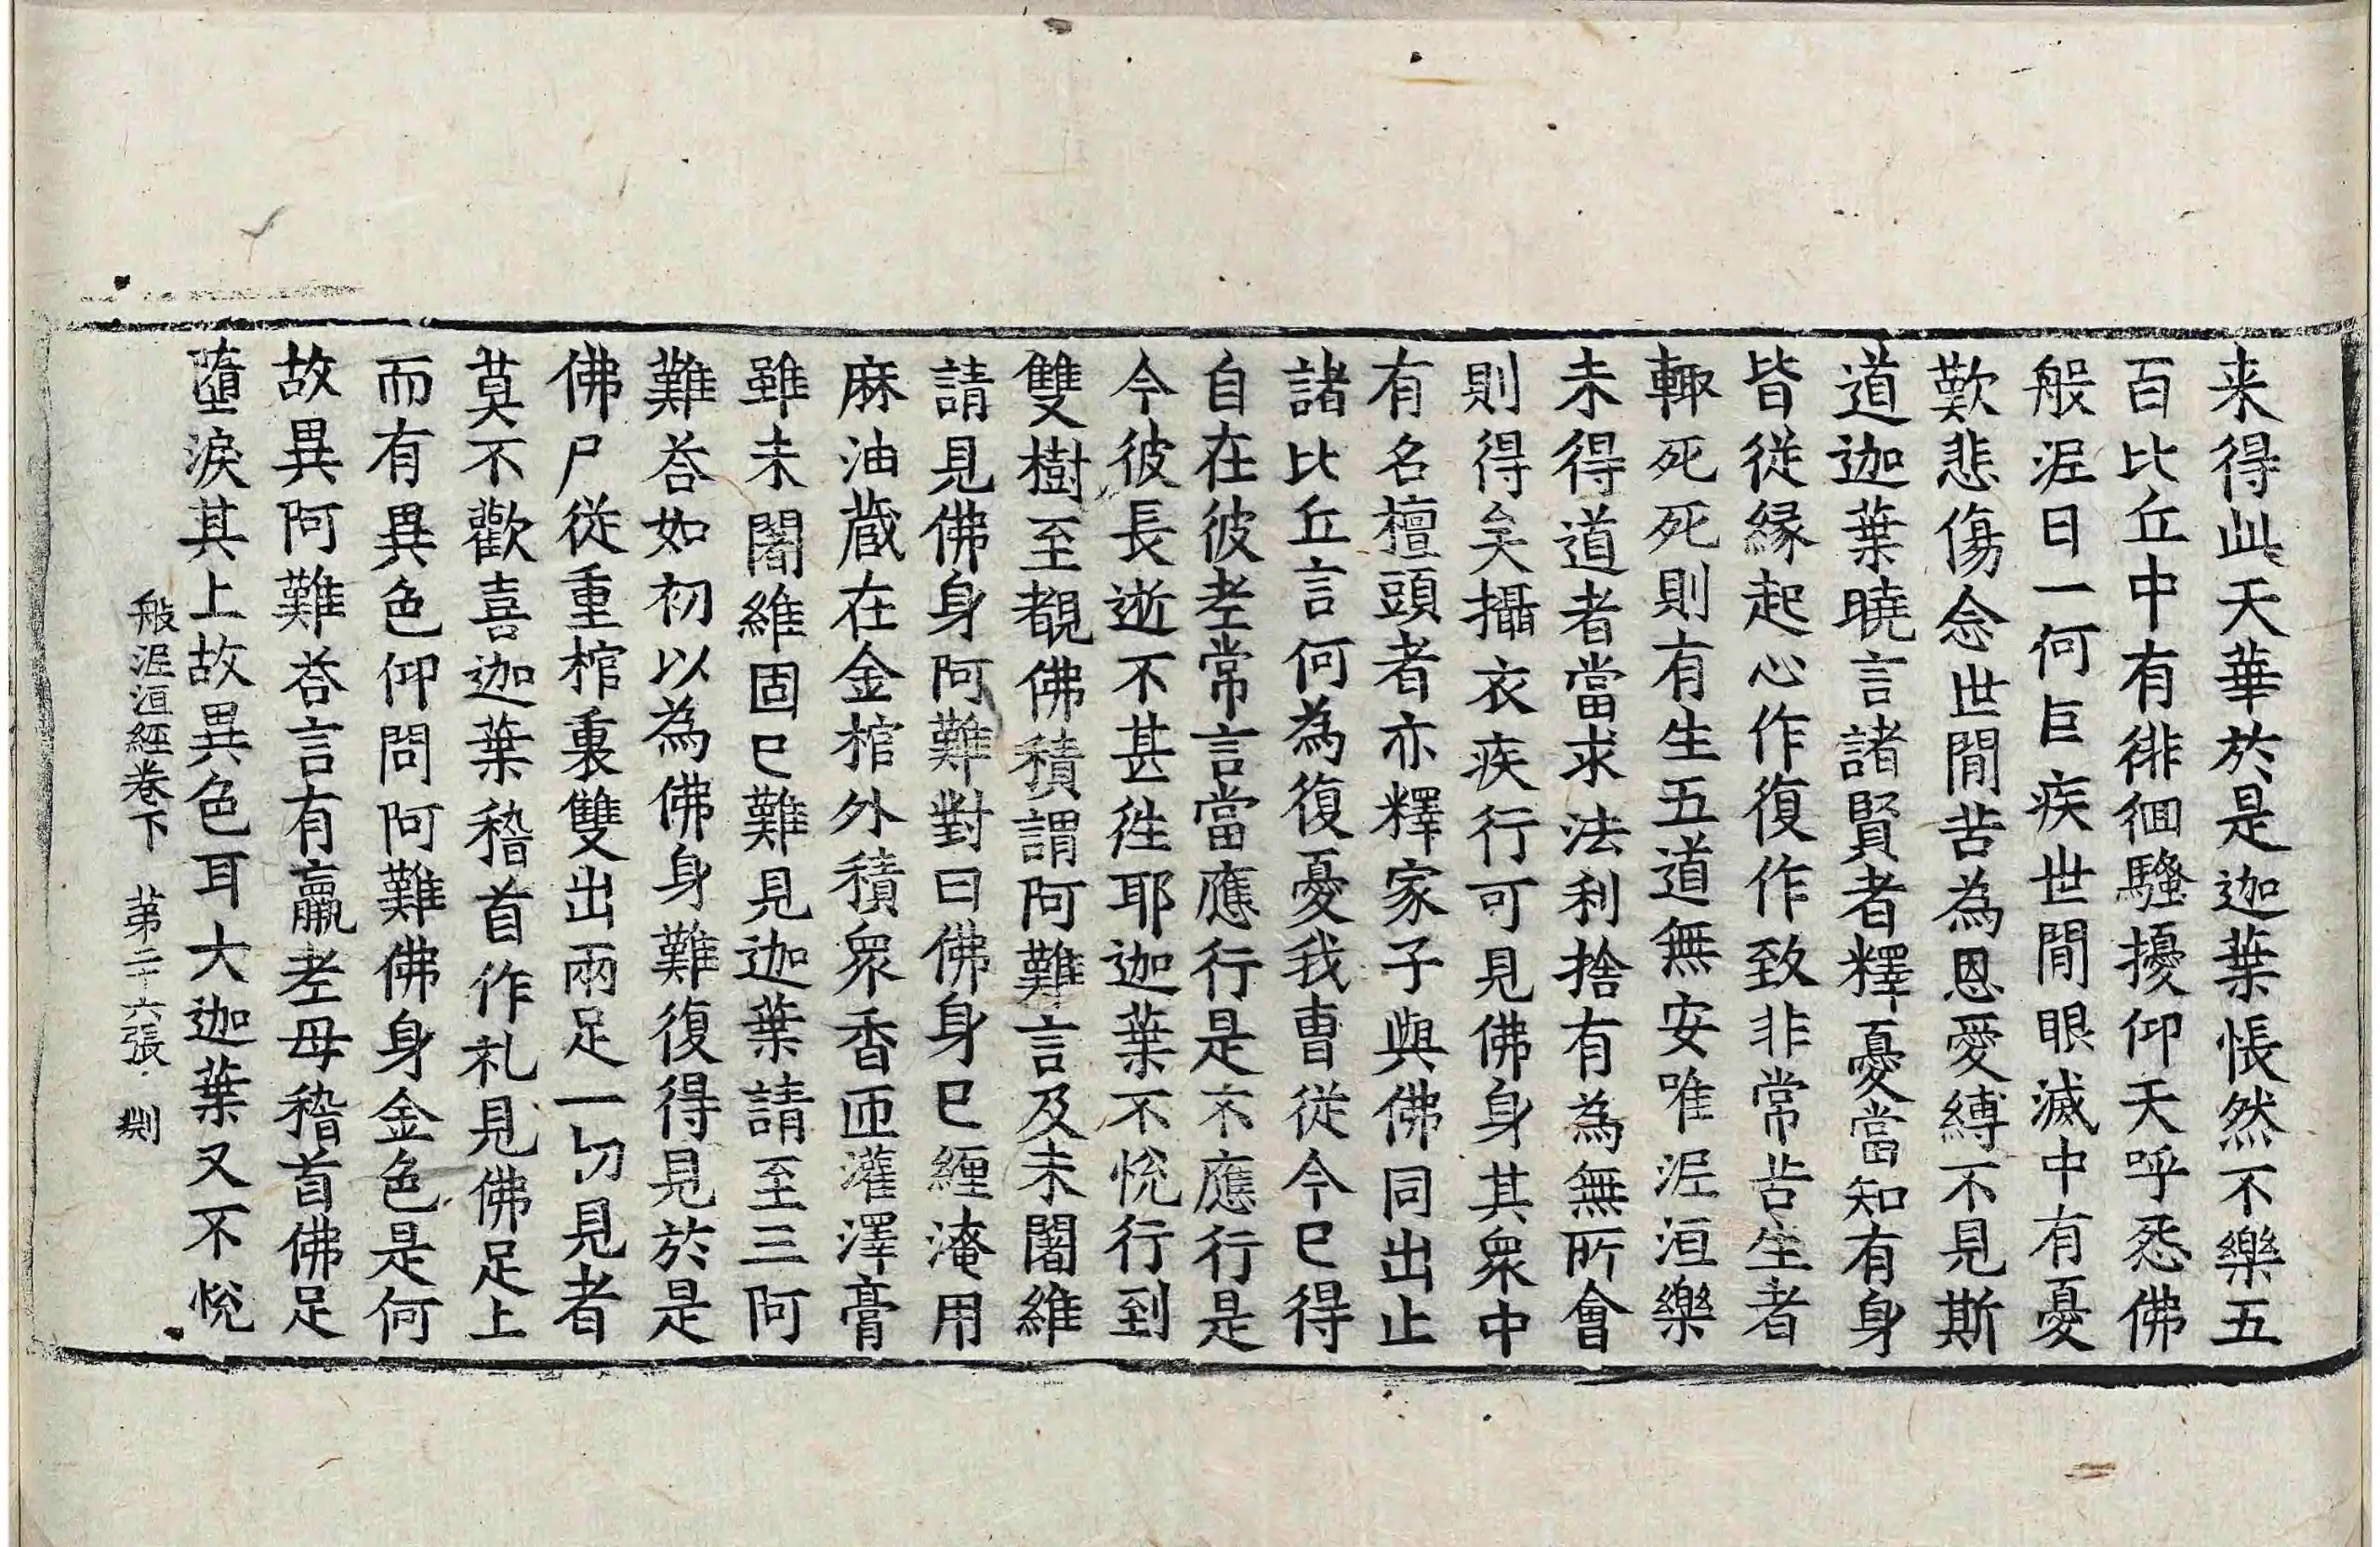 来得此天華於是迦葉悵然不樂五
百比丘中有徘徊騷擾仰天呼怨佛
般泥曰一何巨疾世閒眼滅中有憂
歎悲傷念世閒苦為恩愛縛不見斯
道迦葉曉言諸賢者釋憂當知有身
皆從緣起心作復作致非常苦生者
輙死死則有生五道無安唯泥洹樂
未得道者當求法利捨有為無所會
則得矣攝衣疾行可見佛身其眾中
有名檀頭者亦釋家子與佛同出止
諸比丘言何為復憂我曹從今已得
自在彼耂常言當應行是不應行是
今彼長逝不甚徃耶迦葉不悅行到
雙樹至覩佛積謂阿難言及未闍維
請見佛身阿難對曰佛身已纏淹用
麻油蔵在金棺外積眾香匝灌澤膏
雖未闍維固已難見迦葉請至三阿
難荅如初以為佛身難復得見於是
佛尸從重棺裏雙出兩足一切見者
莫不歡喜迦葉稽首作礼見佛足上
而有異色仰問阿難佛身金色是何
故異阿難荅言有羸老母稽首佛足
墮淚其上故異色耳大迦葉又不悅
般泥洹經卷下 第二十六張 𠜇